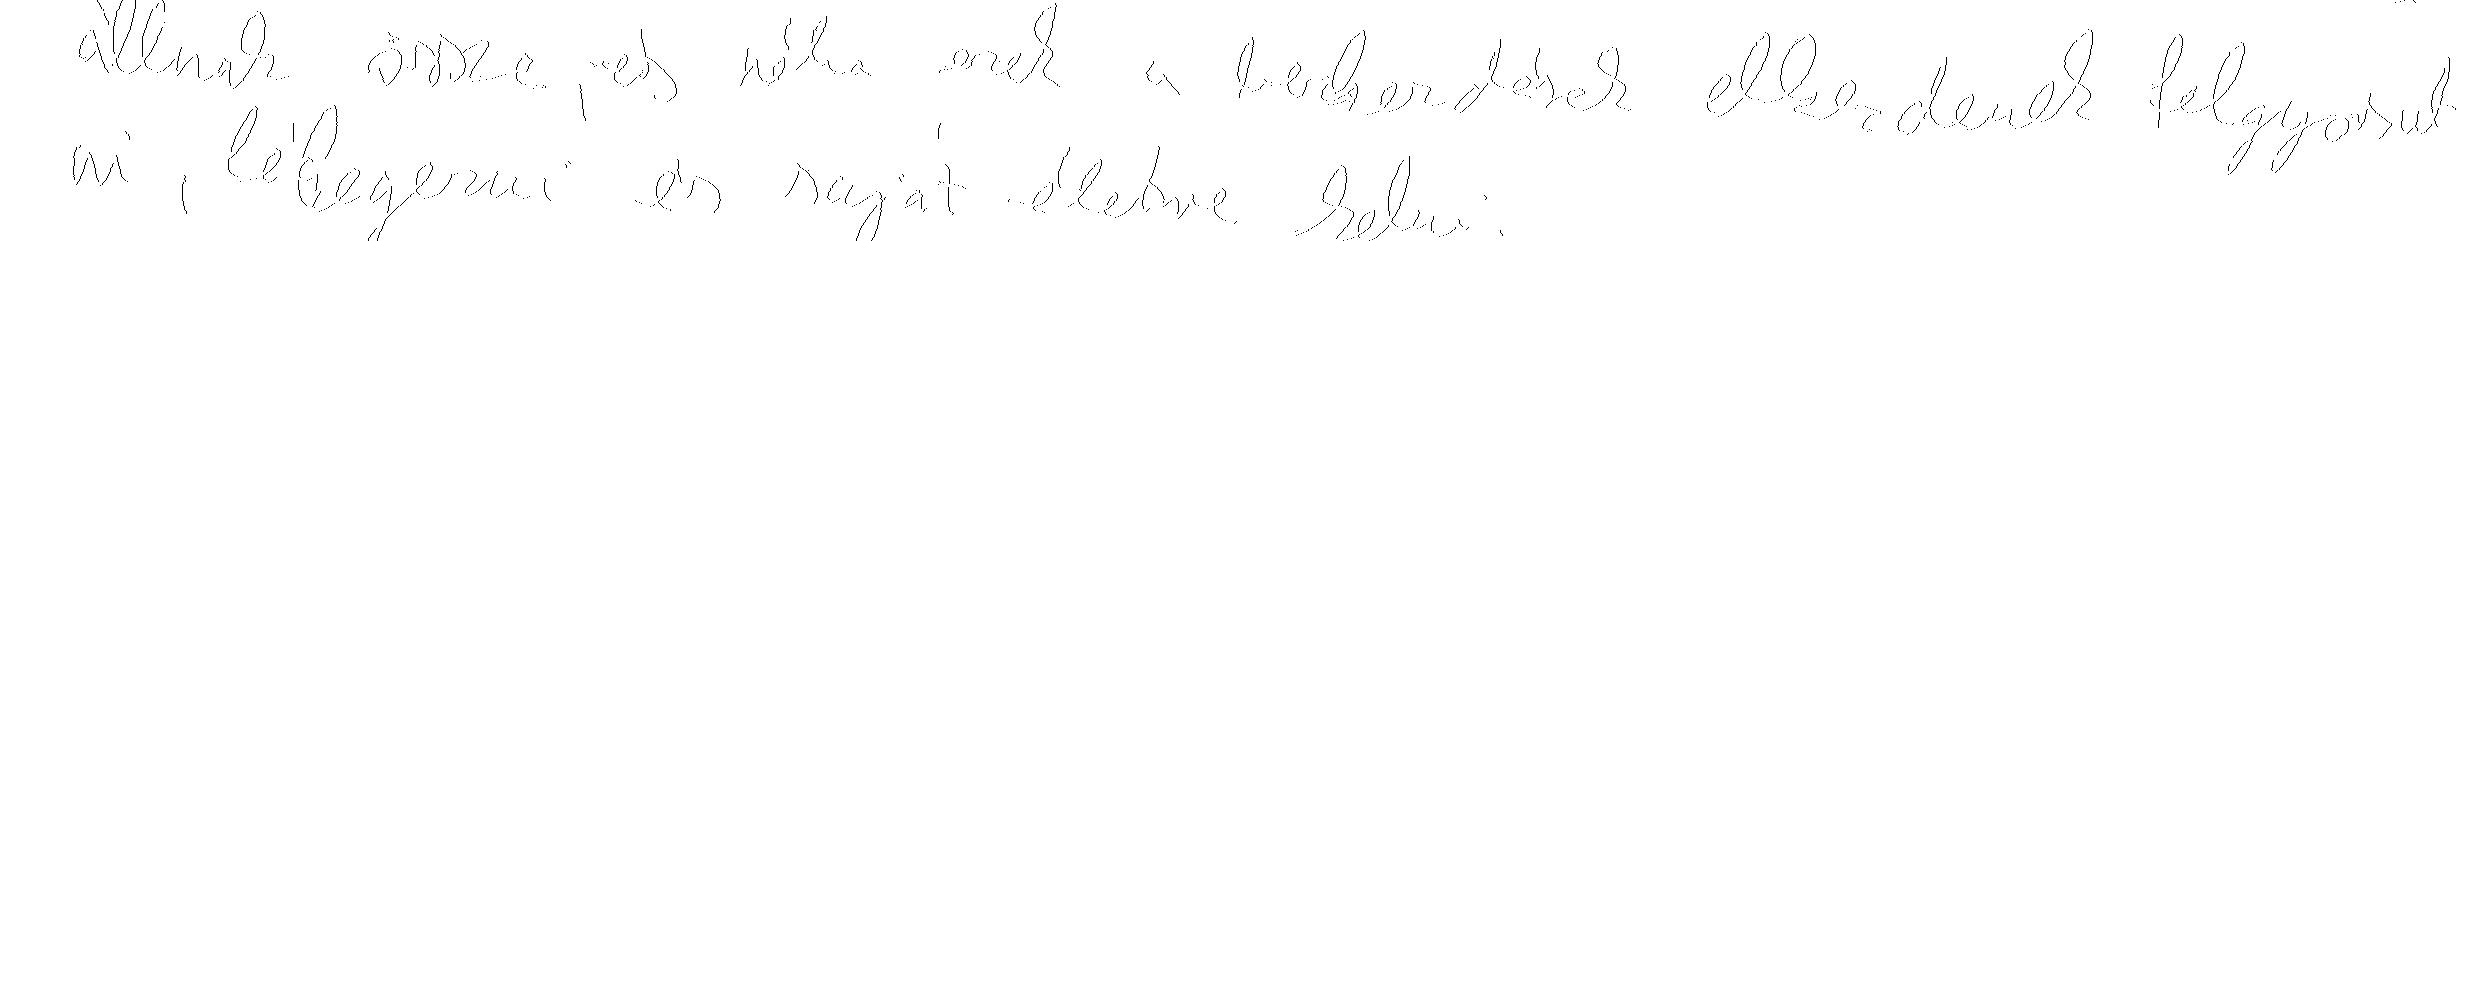 állnak össze, és néha ezek a berendezések elkezdenek felgyorsul
ni, lélegezni és saját életre kelni.